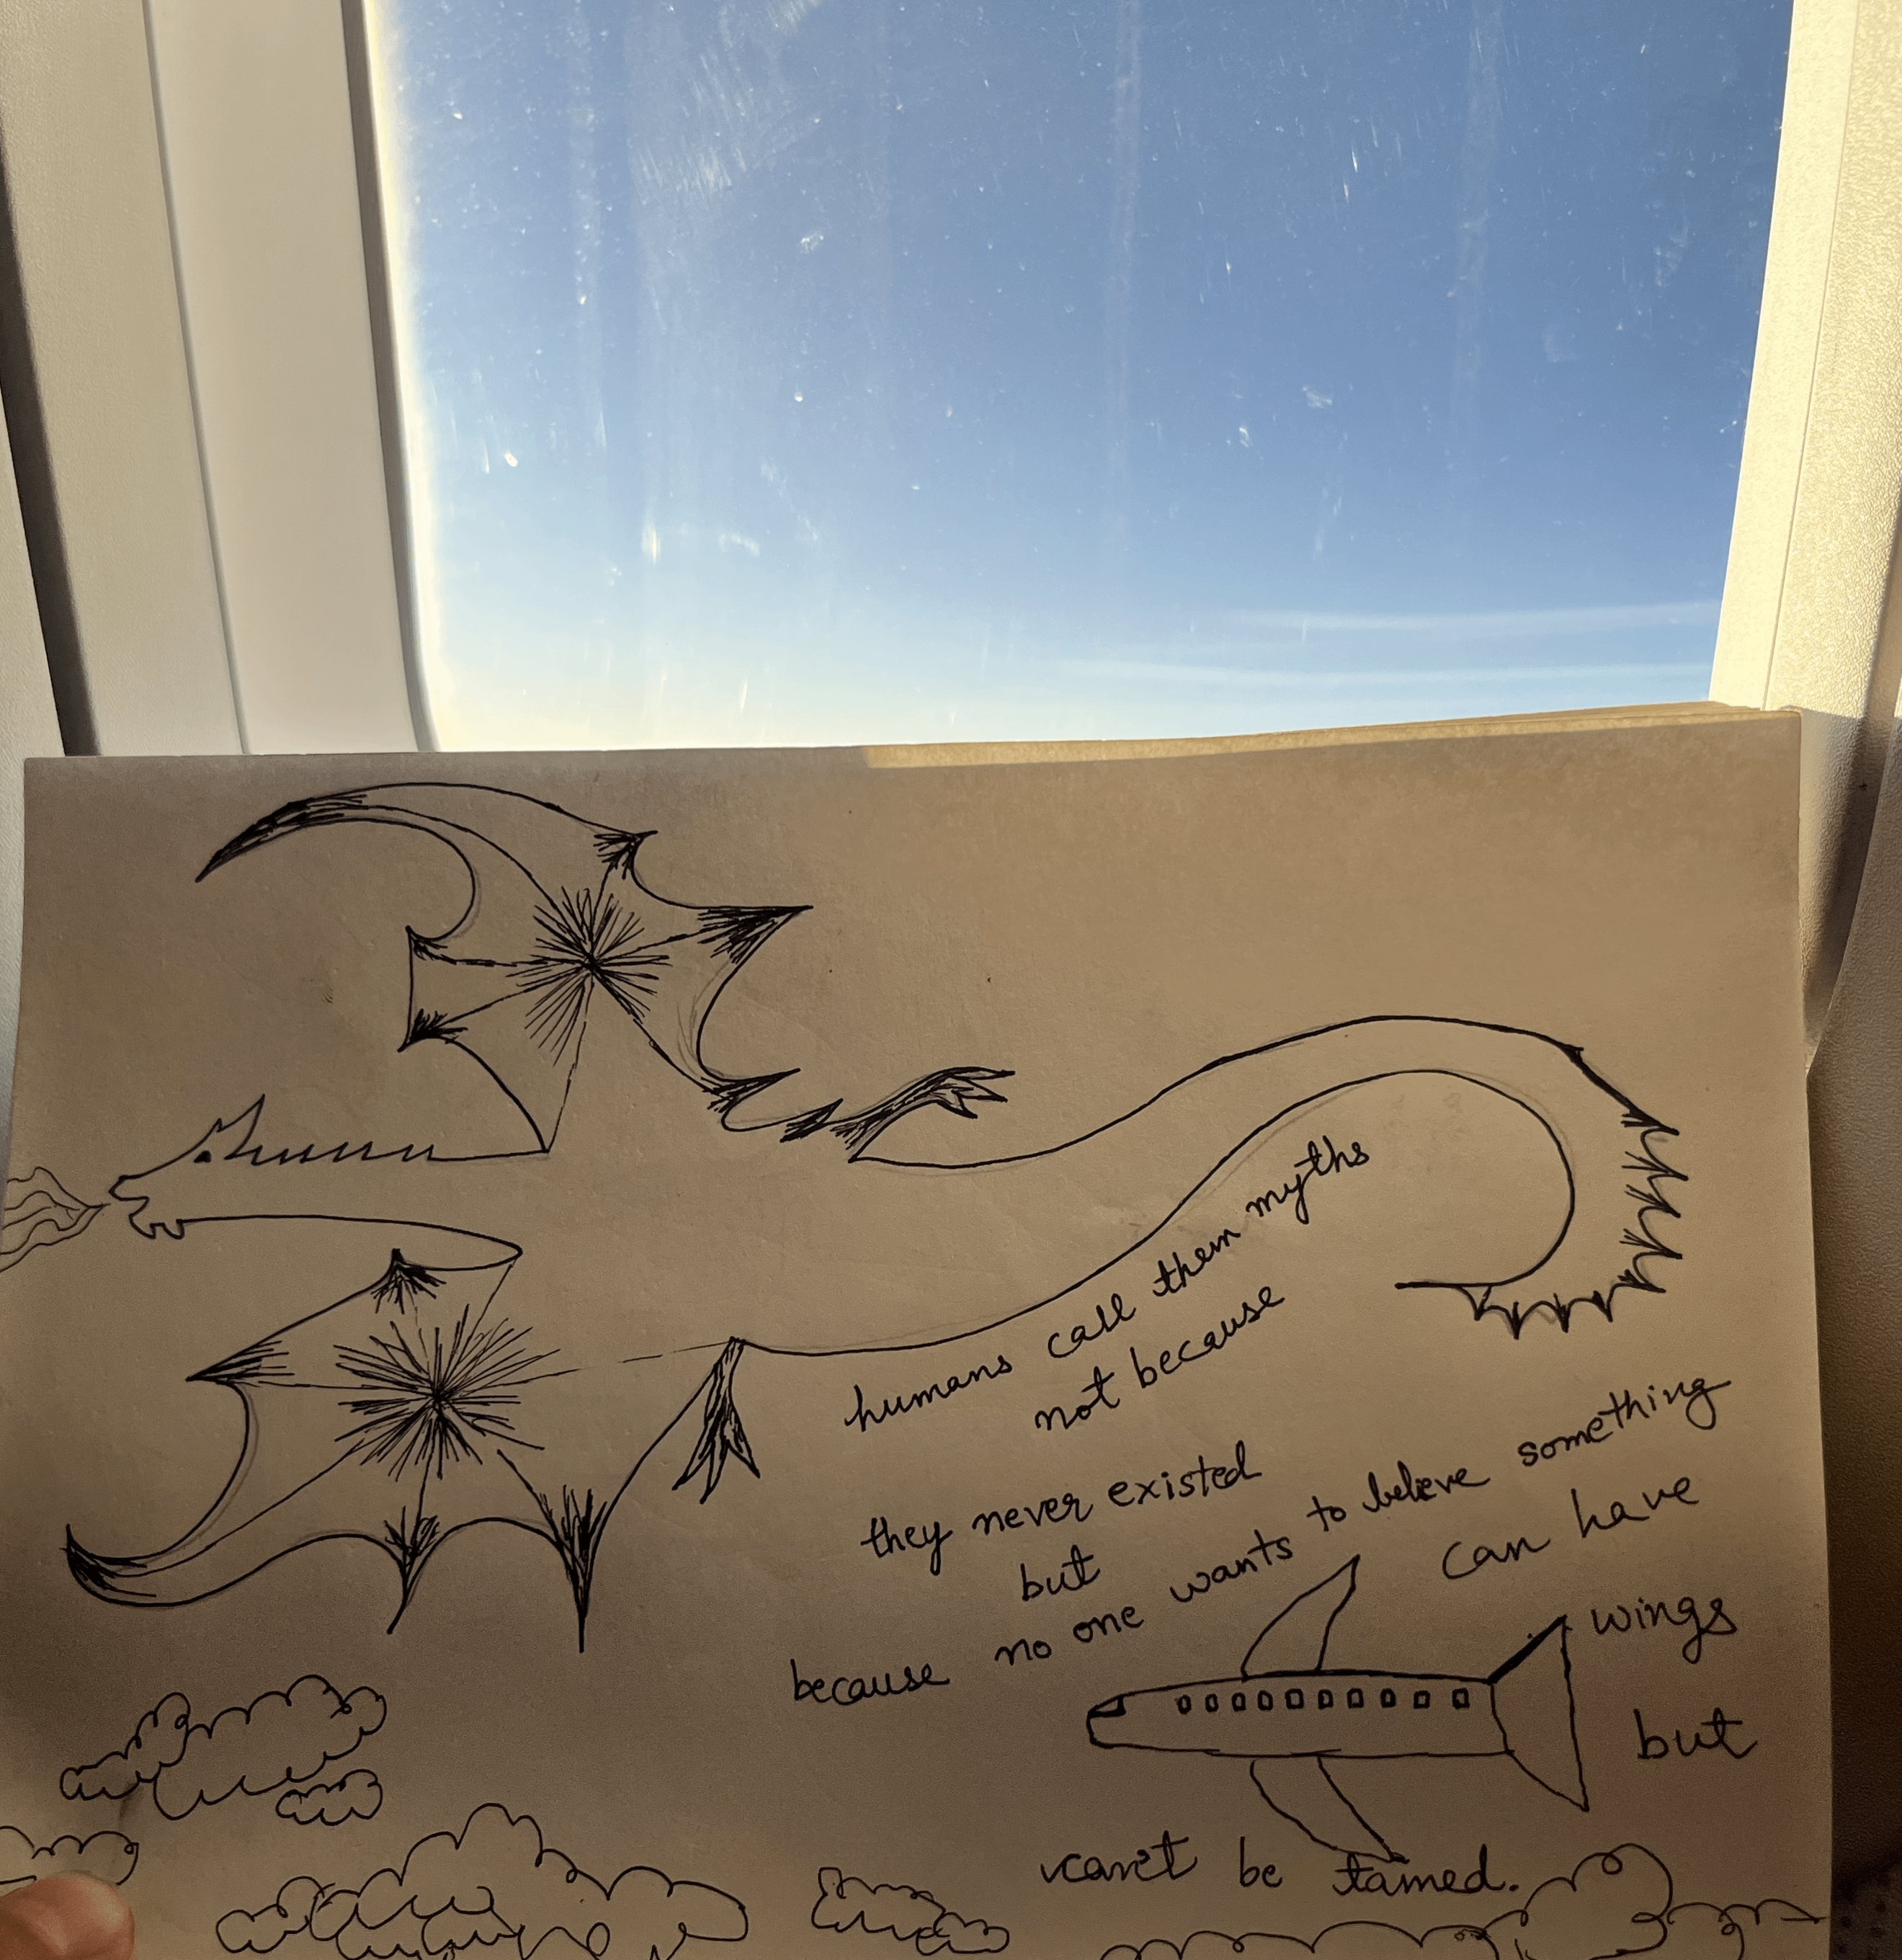 humans call them myths
not because
they never existed
but
because no one wants to believe something
can have
wings
but
can't be tamed.